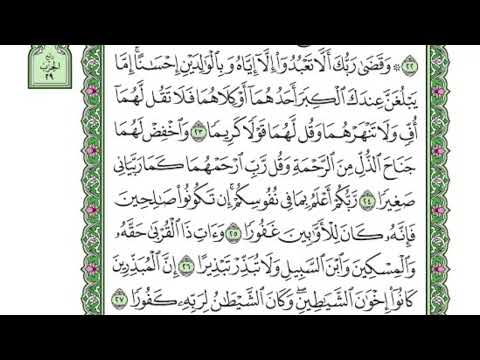 ربع
الحزب
٢٩
٢٢ ۞ وَقَضَىٰ رَبُّكَ أَلَّا تَعْبُدُوٓا۟ إِلَّآ إِيَّاهُ وَبِٱلْوَٰلِدَيْنِ إِحْسَٰنًا ۚ إِمَّا
يَبْلُغَنَّ عِندَكَ ٱلْكِبَرَ أَحَدُهُمَآ أَوْ كِلَاهُمَا فَلَا تَقُل لَّهُمَآ
أُفٍّ وَلَا تَنْهَرْهُمَا وَقُل لَّهُمَا قَوْلًا كَرِيمًا ٢٣ وَٱخْفِضْ لَهُمَا
جَنَاحَ ٱلذُّلِّ مِنَ ٱلرَّحْمَةِ وَقُل رَّبِّ ٱرْحَمْهُمَا كَمَا رَبَّيَانِى
صَغِيرًا ٢٤ رَّبُّكُمْ أَعْلَمُ بِمَا فِى نُفُوسِكُمْ ۚ إِن تَكُونُوا۟ صَٰلِحِينَ
فَإِنَّهُۥ كَانَ لِلْأَوَّٰبِينَ غَفُورًا ٢٥ وَءَاتِ ذَا ٱلْقُرْبَىٰ حَقَّهُۥ
وَٱلْمِسْكِينَ وَٱبْنَ ٱلسَّبِيلِ وَلَا تُبَذِّرْ تَبْذِيرًا ٢٦ إِنَّ ٱلْمُبَذِّرِينَ
كَانُوٓا۟ إِخْوَٰنَ ٱلشَّيَٰطِينِ ۖ وَكَانَ ٱلشَّيْطَٰنُ لِرَبِّهِۦ كَفُورًا ٢٧